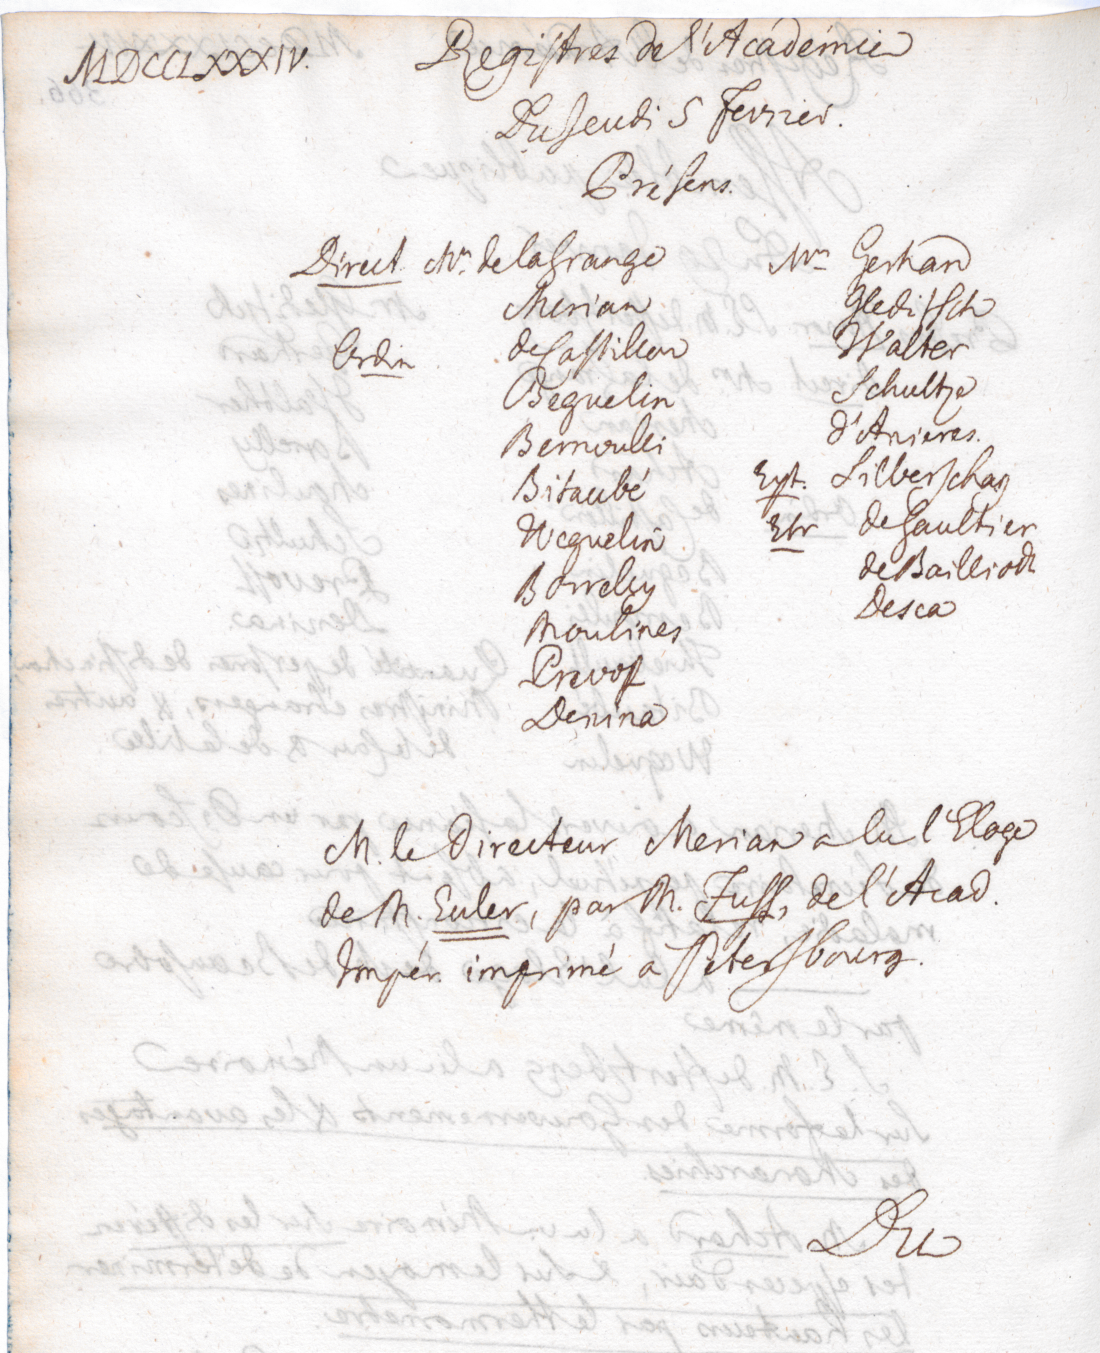 MDCCLXXXIV.
Registres de l'Academie
Du Jeudi 5 Fevrier.
Présens.
Direct Mr. de la Grange
Merian
Ordin de Castillon
Béguelin
Bernoulli
Bitaubé
Weguelin
Borrelly
Moulines
Prevost
Denina
Mrs Gerhard
Gleditsch
Walter
Schultze
d'Anieres.
Silberschlag
Etr de Gaultier
de Bailliodz
Desca
M. le Directeur Merian a lu l'Eloge
de M. Euler, par M. Fuss, de l'Acad.
Impér. imprimé a Petersbourg.
Du